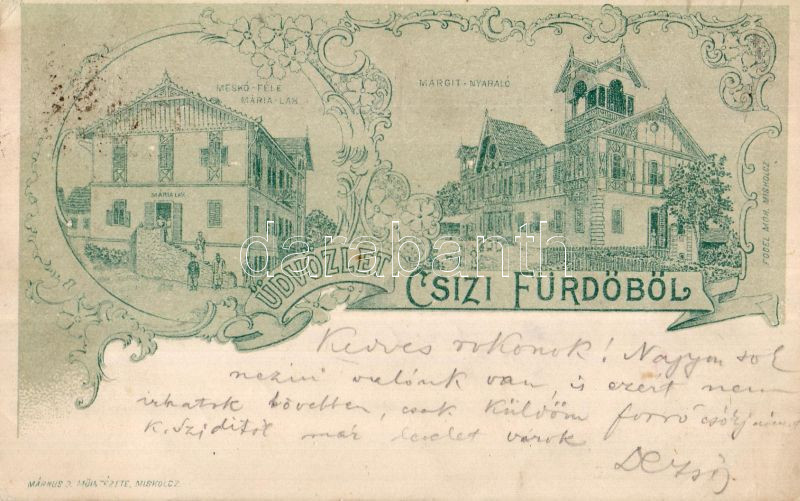 MESKÓ-FÉLE
MÁRIA-LAK
MARGIT-NYARALÓ
MÁRIA LAK
FODEL MÓR, MISKOLCZ
darabanth
ÜDVÖZLET
CSIZI FÜRDŐBŐL
Kedves rokonok! Nagyon sok
nézni valónk van, is ezért nem
irhatok bővebben, csak küldöm forró
már levelet várok
Dezső
MÁRKUS D. MŰINTÉZETE, MISKOLCZ